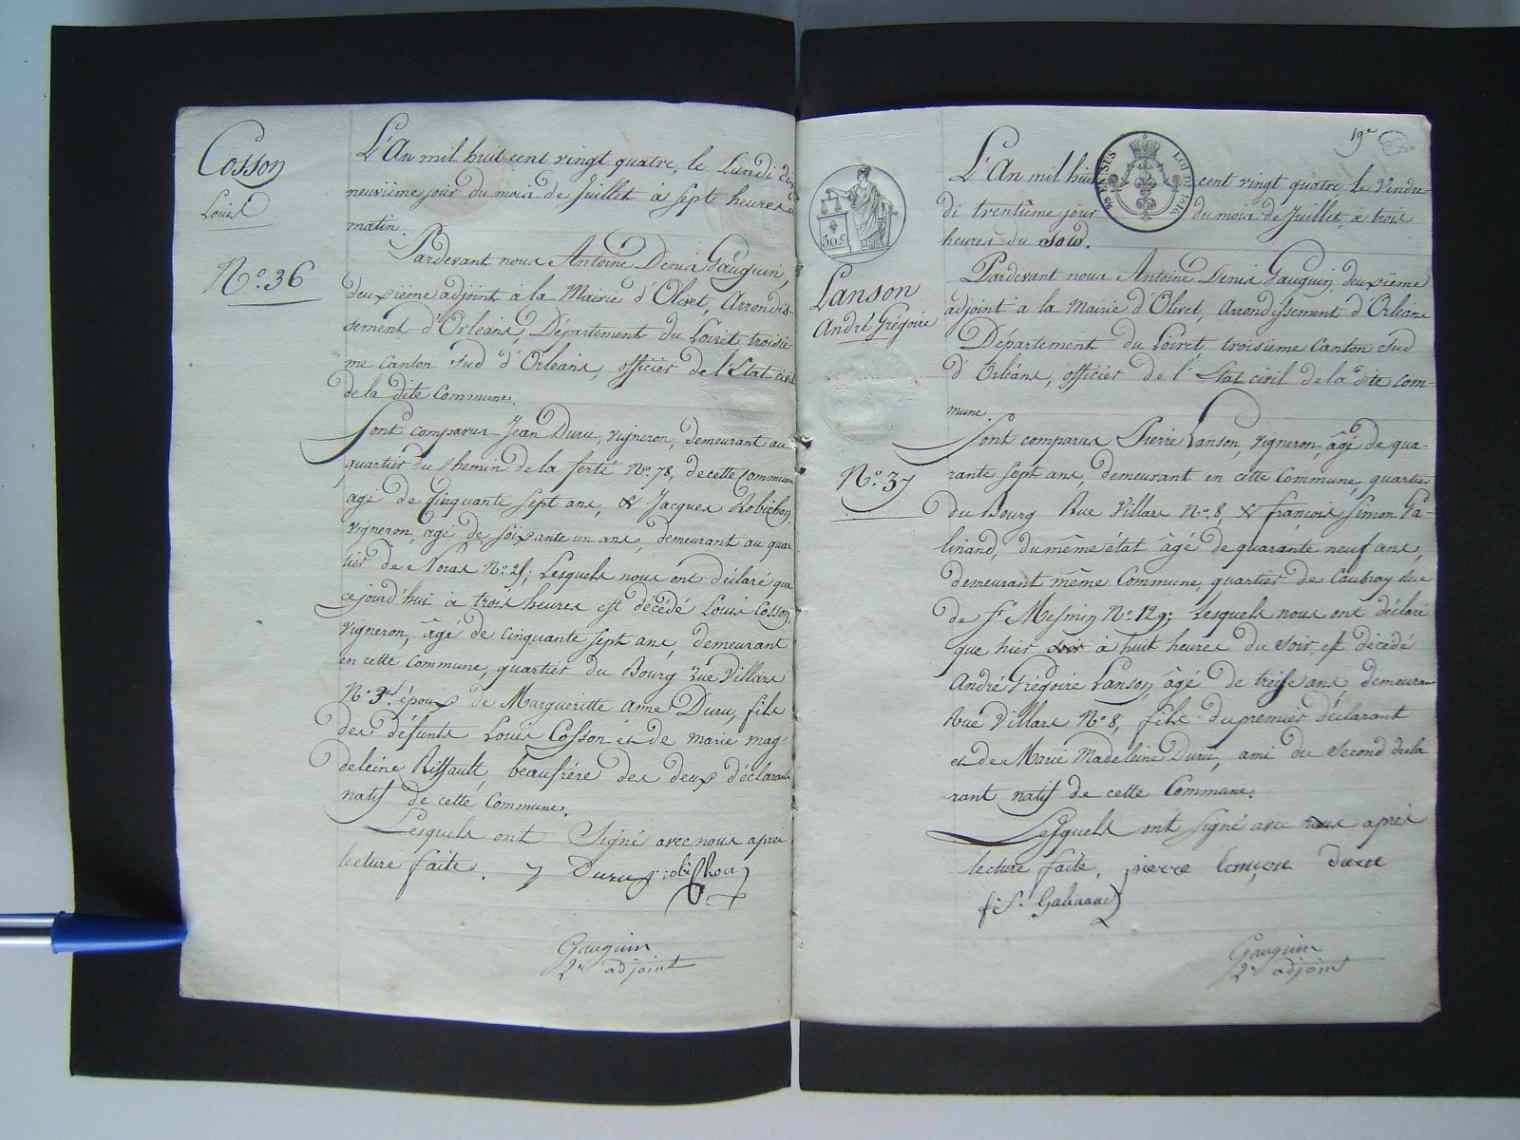 Cosson
Louis
N.º 36
L'An mil huit cent vingt quatre, le Lundi dix
neuvième jour du mois de Juillet à sept heures du
matin.
Pardevant nous Antoine Denis Gauguin,
deuxième adjoint à la Mairie d'Olivet, Arrondis-
sement d'Orléans, Département du Loiret troisiè-
me Canton Sud d'Orléans, officier de l'Etat civil
de la dite Commune.
Sont comparus Jean Duru, vigneron, demeurant au
quartier du chemin de la ferté N.º 78, de cette commune
agé de Cinquante sept ans, & Jacques Robichon,
vigneron, agé de soixante un ans, demeurant au quar
tier de Noras N.º 21; Lesquels nous ont déclaré que
cejourd'hui à trois heures est décédé Louis Cosson,
vigneron, âgé de cinquante sept ans, demeurant
en cette Commune, quartier du Bourg rue Villars
N.º 3, époux de Margueritte Anne Duru, fils
des défunts Louis Cosson et de Marie Mag-
deleine Riffault, beaufrére des deux déclarants
natif de cette Commune.
Lesquels ont Signé avec nous après
lecture faite. Duru j: robichon
Gauguin
2e adjoint
19e
50c
LOUIS XVIII
Lanson
André Grégoire
N.º 37
L'An mil huit cent vingt quatre le Vendre
di trentième jour du mois de Juillet, à trois
heures du soir.
Pardevant nous Antoine Denis Gauguin deuxième
adjoint à la Mairie d'Olivet, Arrondissement d'Orléans
Département du Loiret, troisième Canton Sud
d'Orléans, officier de l'Etat civil de la dite com-
mune.
Sont comparus Pierre Lanson, vigneron, âgé de qua-
rante sept ans, demeurant en cette Commune, quartier
du Bourg Rue Villars N.º 8, & françois Simon Ga-
linand, du même état âgé de quarante neuf ans,
demeurant même Commune, quartier de Coubray Rue
de St Mesmin N.º 129; Lesquels nous ont déclaré
que hier soir à huit heures du soir, est décédé
André Grégoire Lanson, âgé de treise ans, demeurant
Rue Villars N.º 8, fils du premier déclarant
et de Marie Madeleine Duru, ami du Second décla
rant natif de cette Commune.
Lesquels ont signé avec nous après
lecture faite. pierre lançon duru
f: S. Galinand
Gauguin
2e adjoint